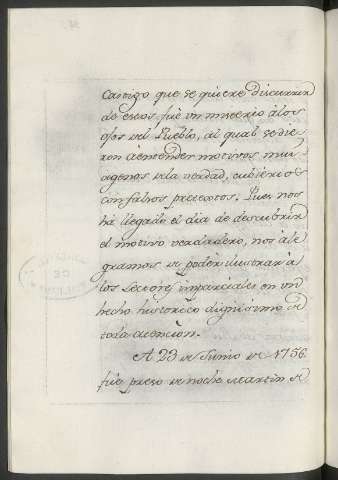 castigo que se quiere discurrir
de estos, fuè un misterio à los
ojos del Pueblo, al qual se die-
ron à entender motivos mui
agenos de la verdad, cubiertos
con falsos pretextos. Pues nos
há llegado el dia de descubrir
el motivo verdadero, nos ale-
gramos de poder ilustrar à
los Lectores imparciales en un
hecho historico dignissimo de
toda atencion.
A 23 de Junio de 1756.
fuè preso de noche Martin de